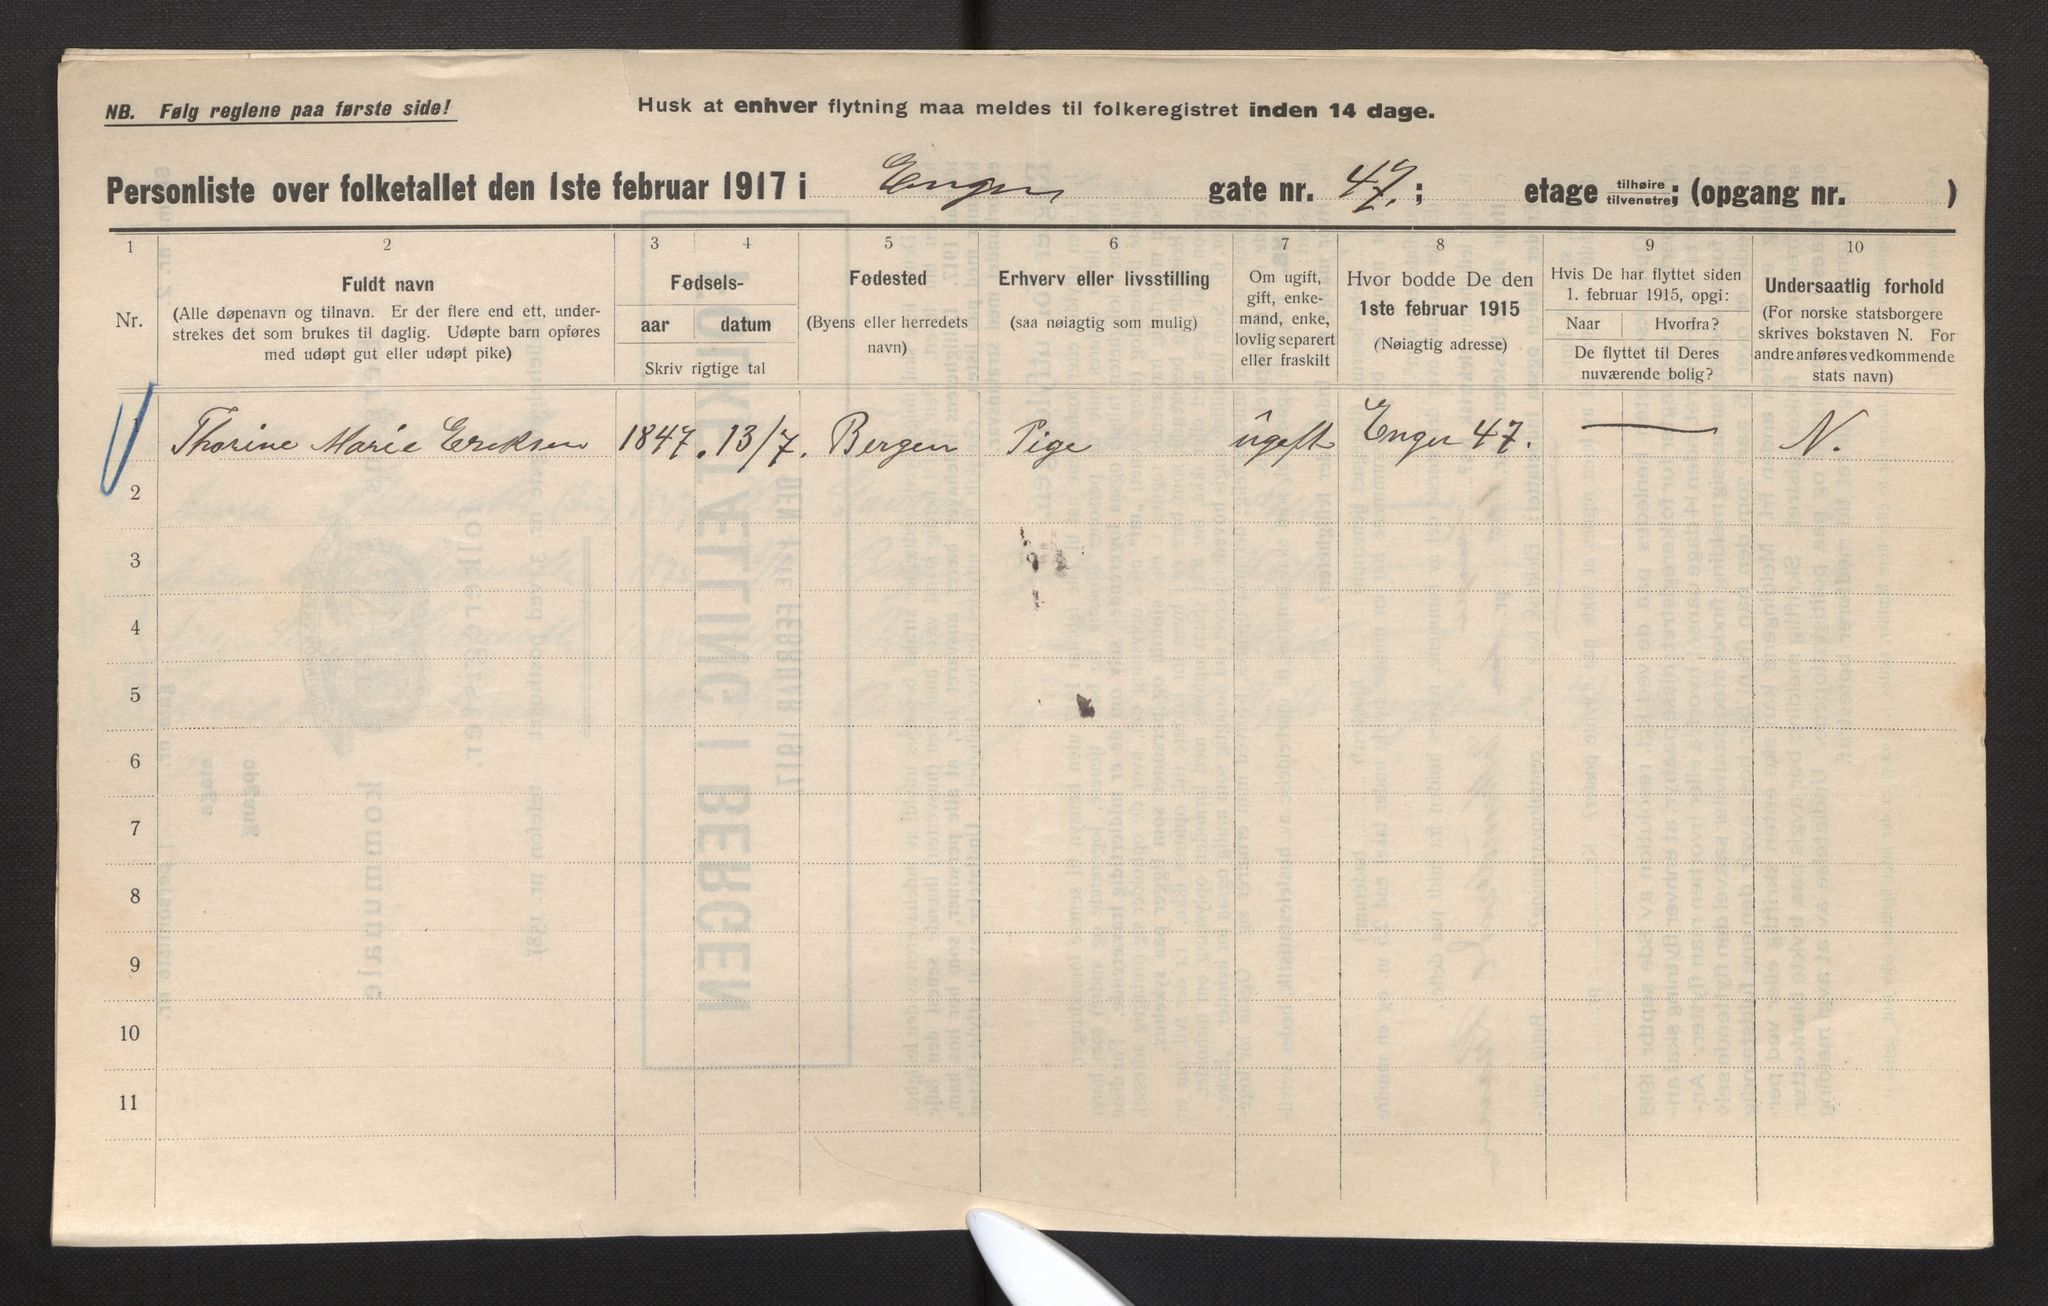 NB. Følg reglene paa første side!
Husk at enhver flytning maa meldes til folkeregistret inden 14 dage.
Personliste over folketallet den 1ste februar 1917 i Engen gate nr. 47. ; etage tilhøire tilvenstre; (opgang nr. )
1 2 3 4 5 6 7 8 9 10
Nr.
Fuldt navn
(Alle døpenavn og tilnavn. Er der flere end ett, under-
strekes det som brukes til daglig. Udøpte barn opføres
med udøpt gut eller udøpt pike)
Fødsels-
aar datum
Skriv rigtige tal
Fødested
(Byens eller herredets
navn)
Erhverv eller livsstilling
(saa nøiagtig som mulig)
Om ugift,
gift, enke-
mand, enke,
lovlig separert
eller fraskilt
Hvor bodde De den
1ste februar 1915
(Nøiagtig adresse)
Hvis De har flyttet siden
1. februar 1915, opgi:
Naar Hvorfra?
De flyttet til Deres
nuværende bolig?
Undersaatlig forhold
(For norske statsborgere
skrives bokstaven N. For
andre anføres vedkommende
stats navn)
Thorine Marie Eriksen 1847. 13/7. Bergen Pige ugift Engen 47. — N.
2
3
4
5
6
7
8
9
10
11